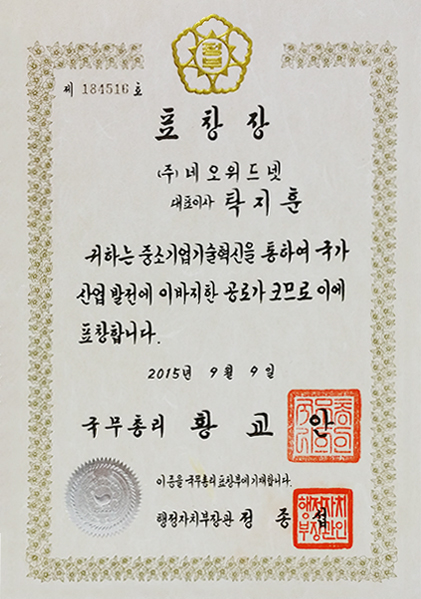 정부
제 184516 호
표창장
(주) 네오위드넷
대표이사 탁지훈
귀하는 중소기업기술혁신을 통하여 국가
산업 발전에 이바지한 공로가 크므로 이에
표창합니다.
2015년 9월 9일
국무총리 황교안
이 증을 국무총리 표창부에 기재합니다.
행정자치부장관 정종섭
행정자치
부장관인